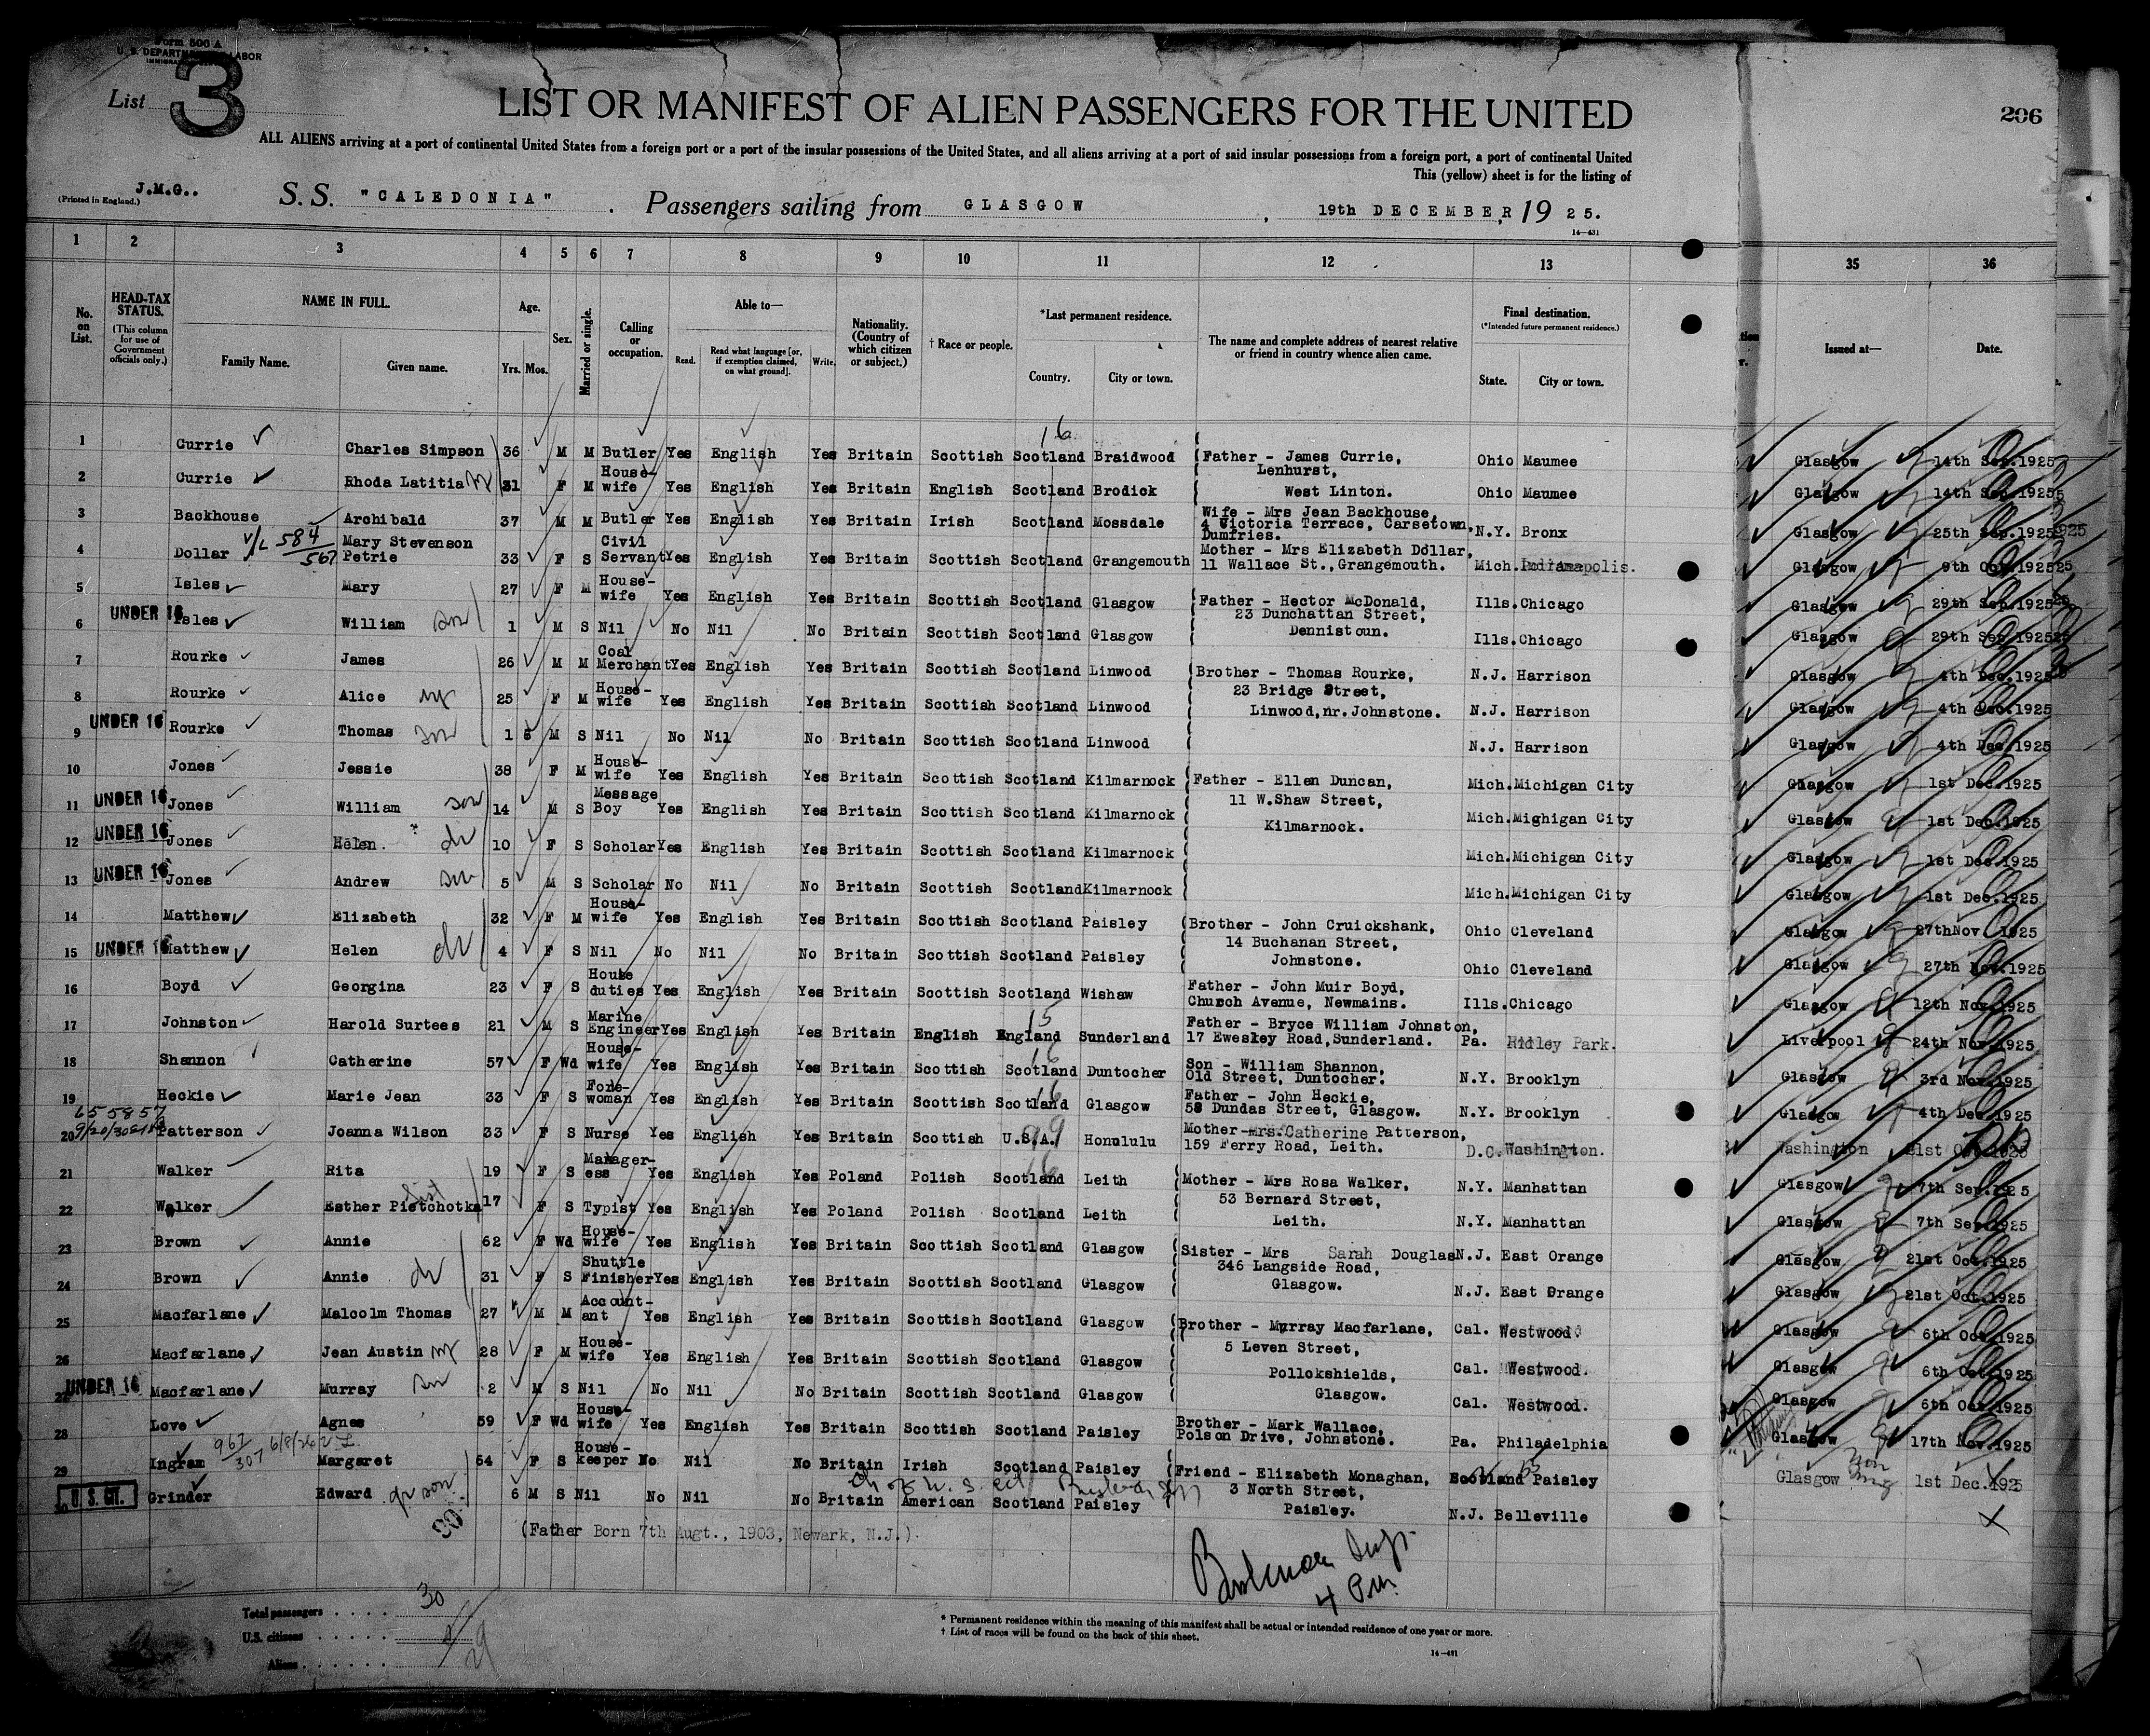 Form 500 A
U. S. DEPARTMENT OF LABOR
List 3
LIST OR MANIFEST OF ALIEN PASSENGERS FOR THE UNITED
206
ALL ALIENS arriving at a port of continental United States from a foreign port or a port of the insular possessions of the United States, and all aliens arriving at a port of said insular possessions from a foreign port, a port of continental United
This (yellow) sheet is for the listing of
J.M.G..
(Printed in England.)
S. S. "CALEDONIA" . Passengers sailing from GLASGOW , 19th DECEMBER, 19 25.
14—431
1 2 3 4 5 6 7 8 9 10 11 12 13 35 36
No. on List.
HEAD-TAX STATUS.
(This column for use of Government officials only.)
NAME IN FULL.
Family Name. Given name.
Age.
Yrs. Mos.
Sex.
Married or single.
Calling or occupation.
Able to—
Read. Read what language [or, if exemption claimed, on what ground]. Write.
Nationality. (Country of which citizen or subject.)
† Race or people.
*Last permanent residence.
Country. City or town.
The name and complete address of nearest relative or friend in country whence alien came.
Final destination.
(*Intended future permanent residence.)
State. City or town.
Issued at— Date.
16
1 Currie Charles Simpson 36 M M Butler Yes English Yes Britain Scottish Scotland Braidwood Father - James Currie, Lenhurst, Ohio Maumee Glasgow 14th Sep.1925
2 Currie Rhoda Latitia 31 F M House-wife Yes English Yes Britain English Scotland Brodick West Linton. Ohio Maumee Glasgow 14th Sep.1925
3 Backhouse Archibald 37 M M Butler Yes English Yes Britain Irish Scotland Mossdale Wife - Mrs Jean Backhouse, 4 Victoria Terrace, Carsetown, Dumfries. N.Y. Bronx Glasgow 25th Sep.1925
584
567
4 Dollar Mary Stevenson Petrie 33 F S Civil Servant Yes English Yes Britain Scottish Scotland Grangemouth Mother - Mrs Elizabeth Dollar, 11 Wallace St.,Grangemouth. Mich. Indianapolis. Glasgow 9th Oct.1925
5 Isles Mary 27 F M House-wife Yes English Yes Britain Scottish Scotland Glasgow Father - Hector McDonald, 23 Dunchattan Street, Ills. Chicago Glasgow 29th Sep.1925
6 UNDER 16 Isles William son 1 M S Nil No Nil No Britain Scottish Scotland Glasgow Dennistoun. Ills. Chicago Glasgow 29th Sep.1925
7 Rourke James 26 M M Coal Merchant Yes English Yes Britain Scottish Scotland Linwood Brother - Thomas Rourke, N.J. Harrison Glasgow 4th Dec.1925
8 Rourke Alice 25 F M House-wife Yes English Yes Britain Scottish Scotland Linwood 23 Bridge Street, Linwood,nr.Johnstone. N.J. Harrison Glasgow 4th Dec.1925
9 UNDER 16 Rourke Thomas son 1 M S Nil No Nil No Britain Scottish Scotland Linwood N.J. Harrison Glasgow 4th Dec.1925
10 Jones Jessie 38 F M House-wife Yes English Yes Britain Scottish Scotland Kilmarnock Father - Ellen Duncan, Mich. Michigan City Glasgow 1st Dec.1925
11 UNDER 16 Jones William son 14 M S Message Boy Yes English Yes Britain Scottish Scotland Kilmarnock 11 W.Shaw Street, Mich. Mighigan City Glasgow 1st Dec.1925
12 UNDER 16 Jones Helen. 10 F S Scholar Yes English Yes Britain Scottish Scotland Kilmarnock Kilmarnock. Mich. Michigan City Glasgow 1st Dec.1925
13 UNDER 16 Jones Andrew son 5 M S Scholar No Nil No Britain Scottish Scotland Kilmarnock Mich. Michigan City Glasgow 1st Dec.1925
14 Matthew Elizabeth 32 F M House-wife Yes English Yes Britain Scottish Scotland Paisley Brother - John Cruickshank, Ohio Cleveland Glasgow 27thNov.1925
15 UNDER 16 Matthew Helen 4 F S Nil No Nil No Britain Scottish Scotland Paisley 14 Buchanan Street, Johnstone. Ohio Cleveland Glasgow 27th Nov.1925
16 Boyd Georgina 23 F S House duties Yes English Yes Britain Scottish Scotland Wishaw Father - John Muir Boyd, Church Avenue, Newmains. Ills. Chicago Glasgow 12th Nov.1925
15
17 Johnston Harold Surtees 21 M S Marine Engineer Yes English Yes Britain English England Sunderland Father - Bryce William Johnston, 17 Ewesley Road,Sunderland. Pa. Ridley Park. Liverpool 24th Nov.1925
16
18 Shannon Catherine 57 F Wd House-wife Yes English Yes Britain Scottish Scotland Duntocher Son - William Shannon, Old Street, Duntocher. N.Y. Brooklyn Glasgow 3rd Nov.1925
16
19 Heckie Marie Jean 33 F S Fore-woman Yes English Yes Britain Scottish Scotland Glasgow Father - John Heckie, 58 Dundas Street, Glasgow. N.Y. Brooklyn Glasgow 4th Dec.1925
655857
20 Patterson Joanna Wilson 33 F S Nurse Yes English Yes Britain Scottish U.S.A. Honolulu Mother-Mrs.Catherine Patterson, 159 Ferry Road, Leith. D.C. Washington. Washington 21st Oct.1925
21 Walker Rita 19 F S Manager-ess Yes English Yes Poland Polish Scotland Leith Mother - Mrs Rosa Walker, N.Y. Manhattan Glasgow 7th Sep.1925
22 Walker Esther Pietchotka 17 F S Typist Yes English Yes Poland Polish Scotland Leith 53 Bernard Street, Leith. N.Y. Manhattan Glasgow 7th Sep.1925
23 Brown Annie 62 F Wd House-wife Yes English Yes Britain Scottish Scotland Glasgow Sister - Mrs Sarah Douglas N.J. East Orange Glasgow 21st Oct.1925
24 Brown Annie 31 F S Shuttle Finisher Yes English Yes Britain Scottish Scotland Glasgow 346 Langside Road, Glasgow. N.J. East Orange Glasgow 21st Oct.1925
25 Macfarlane Malcolm Thomas 27 M M Account-ant Yes English Yes Britain Scottish Scotland Glasgow Brother - Murray Macfarlane, Cal. Westwood. Glasgow 6th Oct.1925
26 Macfarlane Jean Austin 28 F M House-wife Yes English Yes Britain Scottish Scotland Glasgow 5 Leven Street, Pollokshields, Cal. Westwood. Glasgow 6th Oct.1925
UNDER 16 Macfarlane Murray son 2 M S Nil No Nil No Britain Scottish Scotland Glasgow Glasgow. Cal. Westwood. Glasgow 6th Oct.1925
28 Love Agnes 59 F Wd House-wife Yes English Yes Britain Scottish Scotland Paisley Brother - Mark Wallace, Polson Drive, Johnstone. Pa. Philadelphia Glasgow 17th Nov.1925
29 Ingram Margaret 64 F S House-keeper No Nil No Britain Irish Scotland Paisley Friend - Elizabeth Monaghan, Scotland Paisley Glasgow 1st Dec.1925
30 U. S. CIT. Grinder Edward gr son 6 M S Nil No Nil No Britain American Scotland Paisley 3 North Street, Paisley. N.J. Belleville
(Father Born 7th Augt., 1903, Newark, N.J.).
4 Pm.
Total passengers . . . . . 30
U.S. citizens . . . . . .
Aliens . . . . . .
* Permanent residence within the meaning of this manifest shall be actual or intended residence of one year or more.
† List of races will be found on the back of this sheet.
14—431